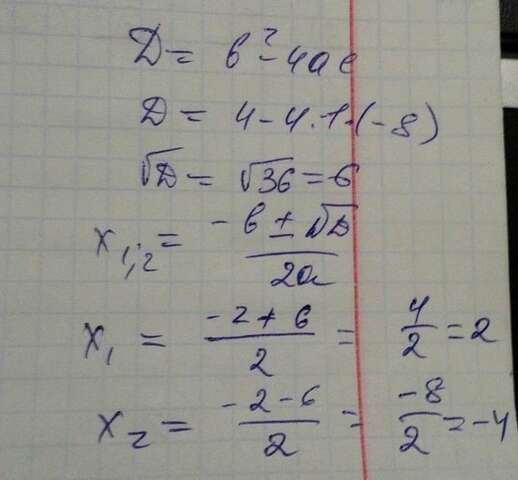 D = b² - 4ac
D = 4 - 4 · 1 · (-8)
√D = √36 = 6
x₁,₂ = (-b ± √D) / 2a
x₁ = (-2 + 6) / 2 = 4/2 = 2
x₂ = (-2 - 6) / 2 = -8/2 = -4